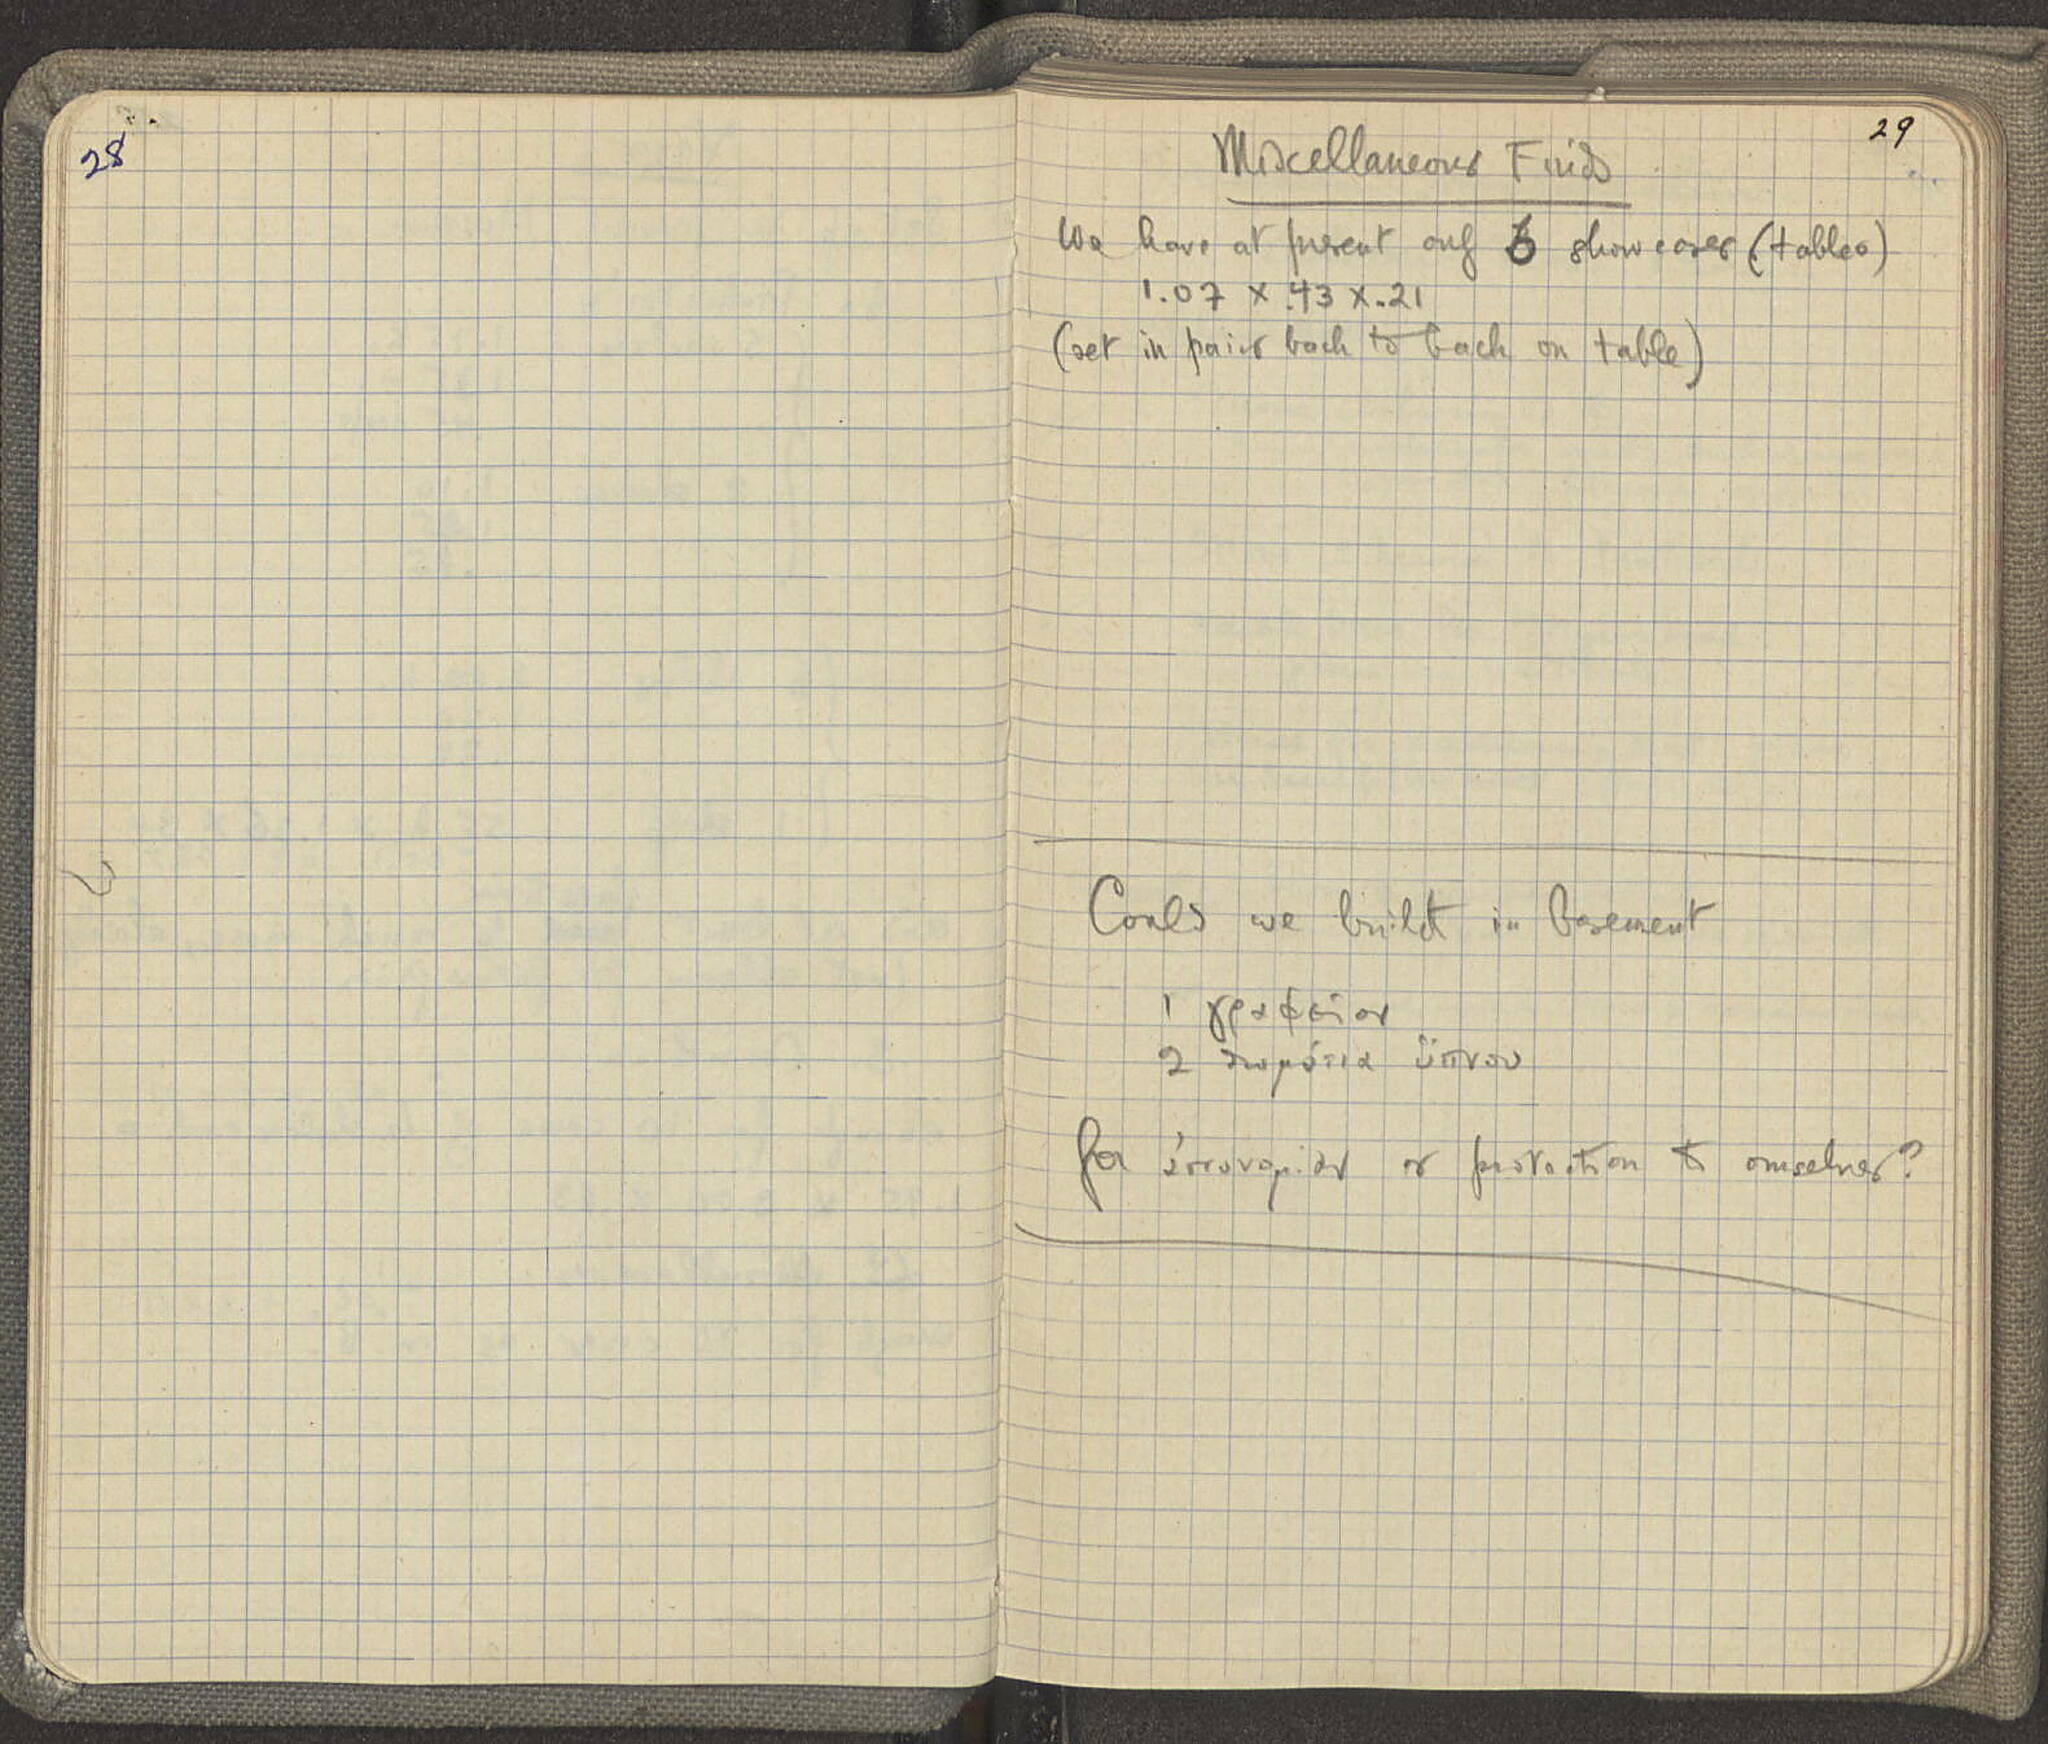 28
29
Miscellaneous Finds
We have at present only 6 showcases (tables)
1.07 x .43 x .21
(set in pairs back to back on table)
Could we build in basement
1 γραφείον
2 δωμάτια ύπνου
for or protection to ourselves?